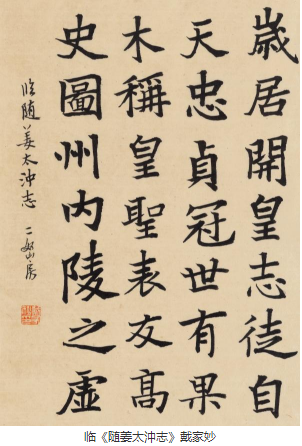 歲居開皇志徒自
天忠貞冠世有果
木稱皇聖表友高
史圖州内陵之虛
临随姜太冲志 二 房
临《随姜太沖志》戴家妙